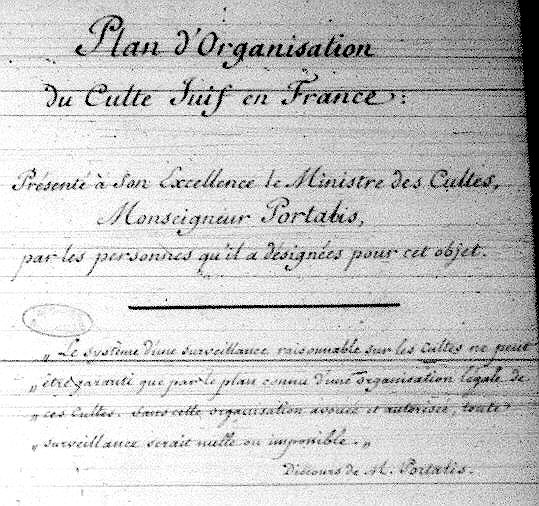 Plan d'Organisation
du Culte Juif en France :
Présenté à Son Excellence le Ministre des Cultes,
Monseigneur Portalis,
par les personnes qu'il a désignées pour cet objet.
„ Le système d'une surveillance raisonnable sur les Cultes ne peut
„ être garanti que par le plan connu d'une organisation légale de
„ ces Cultes. Sans cette organisation avouée et autorisée, toute
„ surveillance serait nulle ou impossible. „
Discours de M. Portalis.